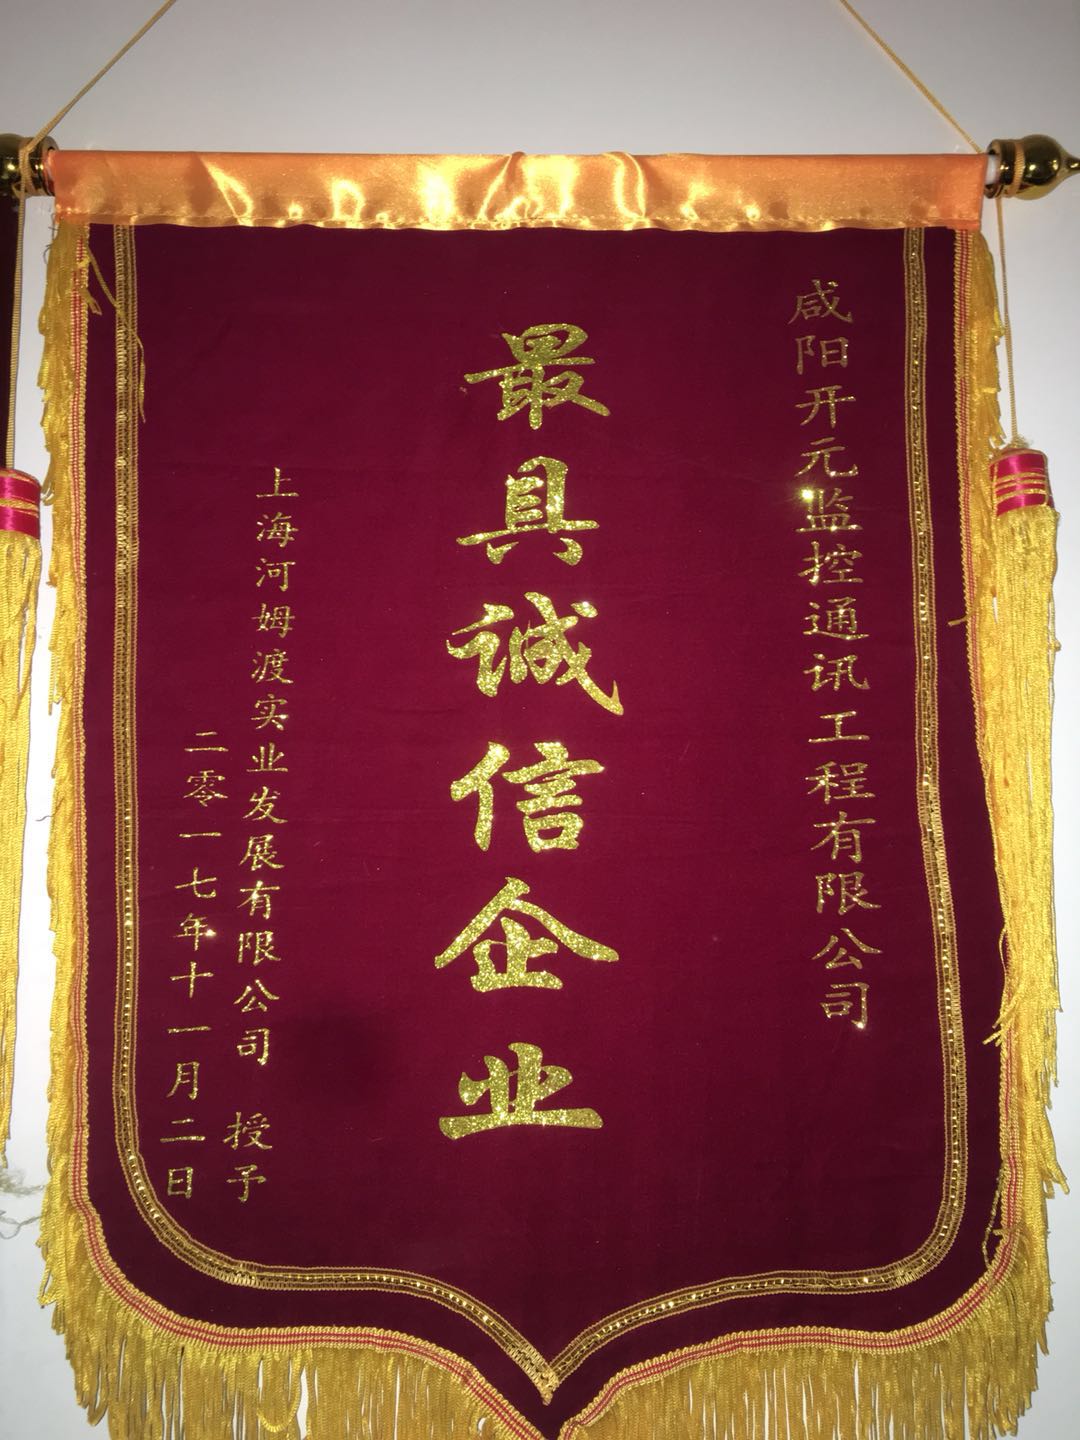 咸阳开元监控通讯工程有限公司
最具诚信企业
上海河姆渡实业发展有限公司 授予
二零一七年十一月二日